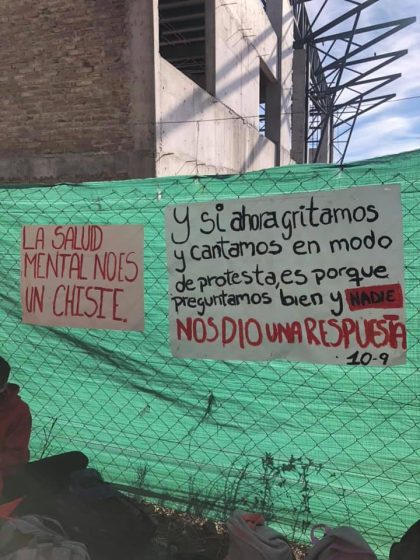 LA SALUD
MENTAL NO ES
UN CHISTE.
Y si ahora gritamos
y cantamos en modo
de protesta, es porque
preguntamos bien y NADIE
NOS DIO UNA RESPUESTA
10-9